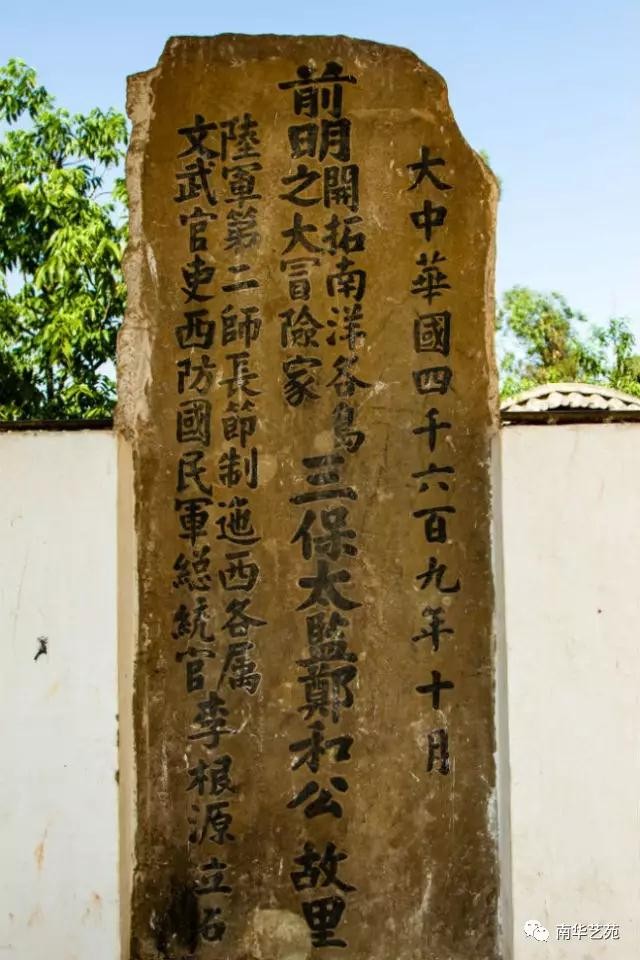 大中華國四千六百九年十月
前明開拓南洋各島
之大冒險家
三保太監鄭和公故里
陸軍第二師長節制迤西各属
文武官吏西防國民軍總統官李根源立石
南华艺苑